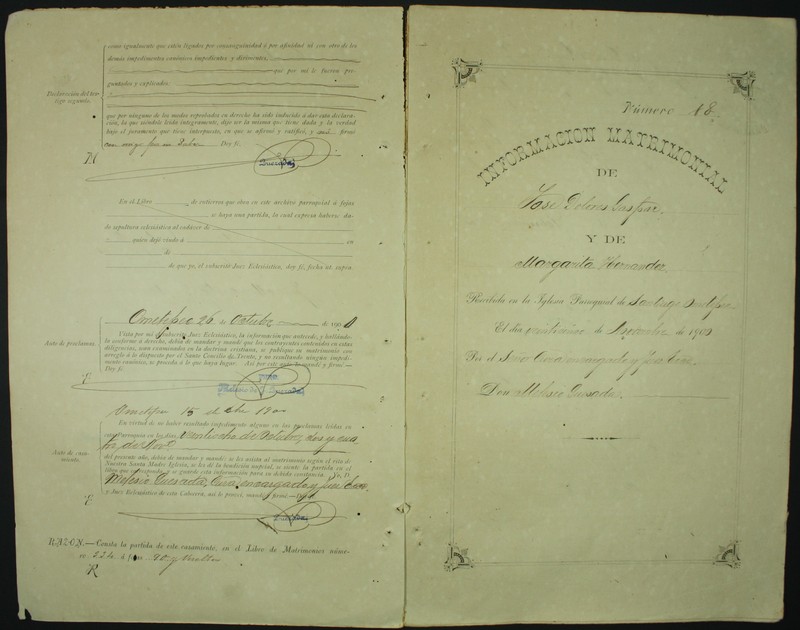 como igualmente que estén ligados por consanguinidad ó por afinidad ni con otro de los
demás impedimentos canónicos impedientes y dirimentes,
que por mí le fueron pre-
guntados y explicados.
Declaración del tes-
tigo segundo.
que por ninguno de los medios reprobados en derecho ha sido inducido á dar esta declara-
ción, la que siéndole leída íntegramente, dijo ser la misma que tiene dada y la verdad
bajo el juramento que tiene interpuesto, en que se afirmó y ratificó, y firmó
Doy fé.
Quesada
En el Libro de entierros que obra en este archivo parroquial á fojas
se haya una partida, la cual expresa haberse da-
do sepultura eclesiástica al cadáver de
quien dejó viudo á en
de
de que yo, el subscrito Juez Eclesiástico, doy fé, fecha ut supra.
Ometepec 26 de Octubre de 1900
Auto de proclamas.
Vista por mí el subscrito Juez Eclesiástico, la información que antecede, y hallándo-
la conforme á derecho, debía de mandar y mandé que los contrayentes contenidos en estas
diligencias, sean examinados en la doctrina cristiana, se publique su matrimonio con
arreglo á lo dispuesto por el Santo Concilio de Trento, y no resultando ningún impedi-
mento canónico, se proceda á lo que haya lugar. Así por este auto lo mandé y firmé—
Doy fé.
Melesio Quesada
Ometepec 15 de 1900
En virtud de no haber resultado impedimento alguno en las proclamas leídas en
esta Parroquia en los días, veintiocho de Octubre, dos y cua
tro de Nov.
Auto de casa-
miento.
del presente año, debía de mandar y mandé: se les asista al matrimonio según el rito de
Nuestra Santa Madre Iglesia, se les dé la bendición nupcial, se siente la partida en el
libro que corresponde y se guarde esta información para su debida constancia. Yo, D.
Melesio Quesada, Cura encargado y Juez Ecco.
y Juez Eclesiástico de esta Cabecera, así lo proveí, mandé y firmé—Doy fé.
Quesada
RAZON.—Consta la partida de este casamiento, en el Libro de Matrimonios núme-
ro á fojas 90 y vuelta
Número 18.
INFORMACION MATRIMONIAL
DE
José Dolores Gaspar.
Y DE
Margarita Hernandez
Recibida en la Iglesia Parroquial de Santiago Ometepec
El día de de 1900
Por el Señor Cura encargado y Juez Ecco.
Don Melesio Quesada.